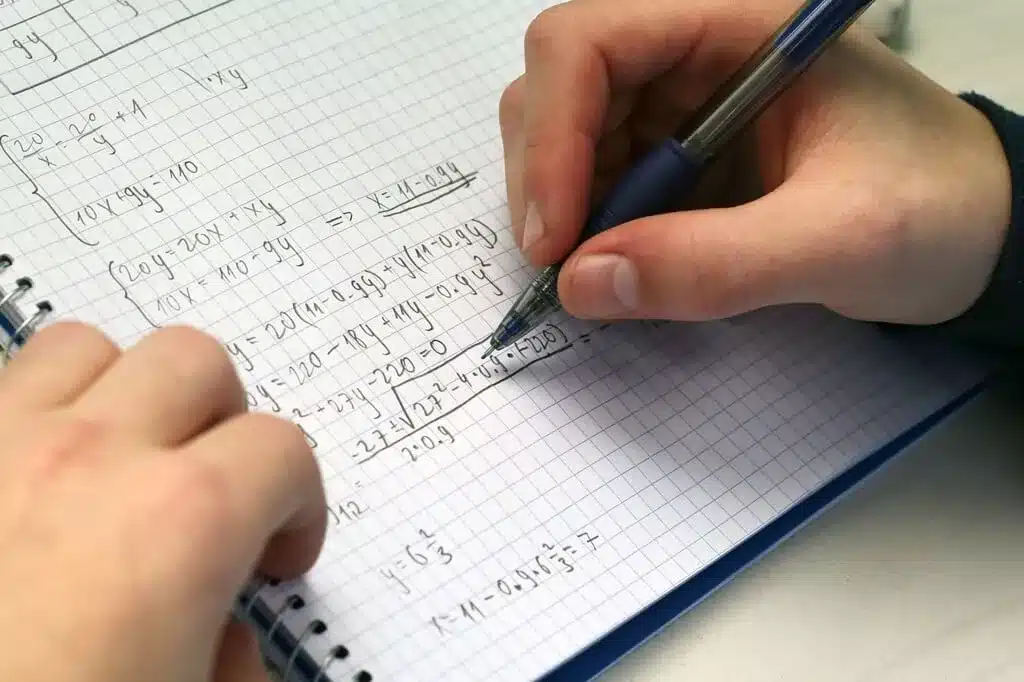 9y
20/x = 20/y + 1 \·xy
10x+9y=110
20y=20x+xy
10x=110-9y => x=11-0.9y
y=20(11-0.9y)+y(11-0.9y)
0y=220-18y+11y-0.9y²
²+27y-220=0
-27±√27²-4·0.9·(-220) =
2·0.9
y=6 2/3
x=11-0.9·6 2/3=7